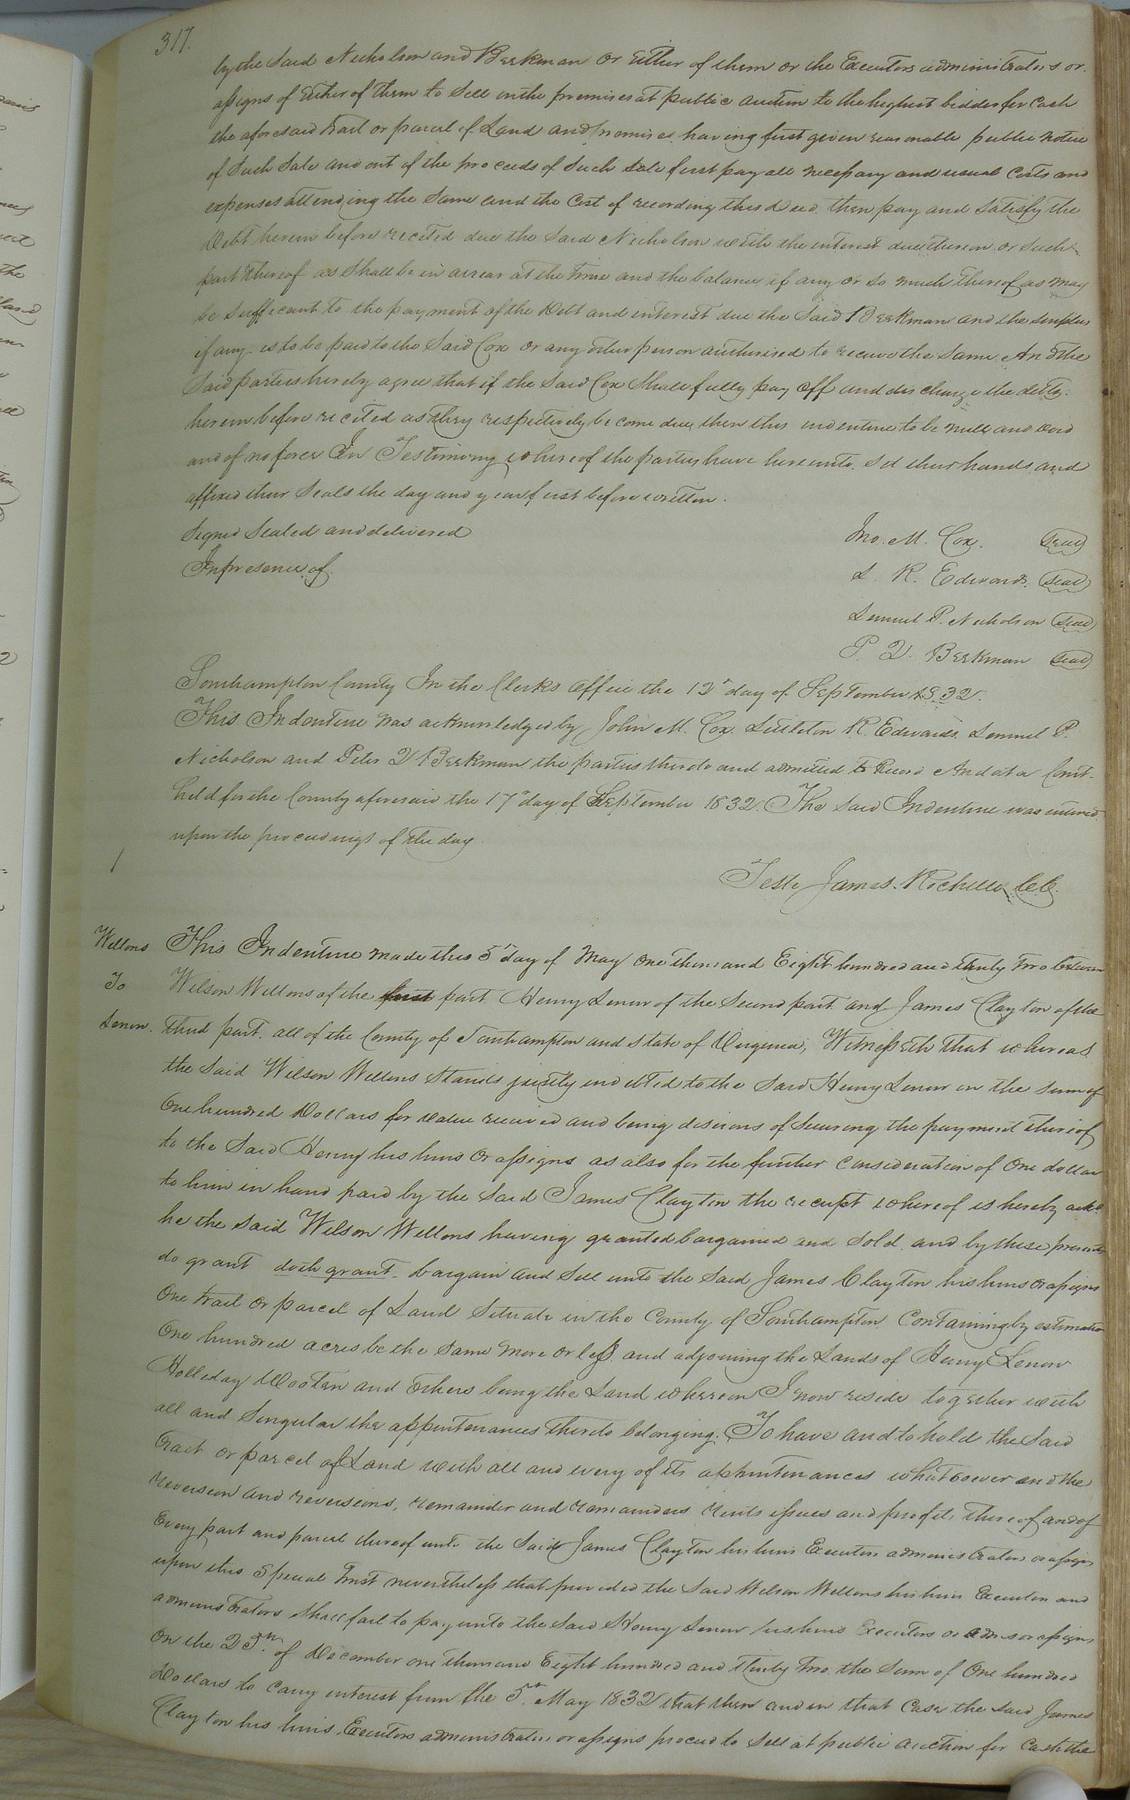 317.
by the Said Nicholson and Beekman or Either of them or the Executors administrators or
assigns of Either of them to Sell on the premises at public auction to the highest bidder for Cash
the aforesaid tract or parcel of Land and premises having first given reasonable public notice
of Such Sale and out of the proceeds of Such Sale first pay all necessary and usual Costs and
expenses attending the Same and the Cost of recording this deed then pay and Satisfy the
Debt herein before recited due the Said Nicholson with the interest due thereon or Such
part thereof as Shall be in arrear at the time and the balance if any or So much thereof as may
be Sufficient to the payment of the Debt and interest due the Said Beekman and the Surplus
if any is to be paid to the Said Cox or any other person authorised to receive the Same And the
Said parties hereby agree that if the Said Cox Shall fully pay off and discharge the debts
herein before recited as they respectively become due, then this indenture to be null and void
and of no force In Testimony whereof the parties have hereunto Set their hands and
affixed their Seals the day and year first before written.
Signed Sealed and delivered
In presence of
Jno. M. Cox. Seal
L. R. Edwards. Seal
Lemuel P. Nicholson Seal
P. Q. Beekman Seal
Southampton County In the Clerks office the 12th day of September 1832.
This Indenture was acknowledged by John M. Cox Littleton R. Edwards Lemuel P.
Nicholson and Peter Q Beekman the parties thereto and admitted to Record And at a Court
held for the County aforesaid the 17th day of September 1832. The Said Indenture was entered
upon the proceedings of the day.
Teste James. Rochelle C.C.
Wellons
To
Lenow.
This Indenture made this 5th day of May One thousand Eight hundred and thirty two between
Wilson Wellons of the first part Henry Lenow of the Second part and James Clayton of the
third part. all of the County of Southampton and State of Virginia, Witnesseth that whereas
the Said Wilson Wellons Stands justly indebted to the Said Henry Lenow in the Sum of
One hundred Dollars for value received and being desirous of Securing the payment thereof
to the Said Henry his heirs or assigns as also for the further consideration of One dollar
to him in hand paid by the Said James Clayton the receipt whereof is hereby ackd
he the Said Wilson Wellons having granted bargained and Sold and by these presents
do grant doth grant bargain and Sell unto the Said James Clayton his heirs or assigns
One tract or parcel of Land Situate in the County of Southampton Containing by estimation
One hundred acres be the Same more or less and adjoining the Lands of Henry Lenow
Holleday Wootan and others being the Land whereon I now reside together with
all and Singular the appurtenances thereto belonging. To have and to hold the Said
tract or parcel of Land with all and every of its appurtenances whatsoever and the
reversion and reversions, remainder and remainders rents issues and profits thereof and of
Every part and parcel thereof unto the Said James Clayton his heirs Executors administrators or assigns
upon this Special trust nevertheless that provided the Said Wilson Wellons his heirs Executors and
administrators Shall fail to pay unto the Said Henry Lenow his heirs Executors or adms or assigns
On the 25th. of December one thousand Eight hundred and thirty two. the Sum of One hundred
Dollars to carry interest from the 5th. May 1832 that then and in that Case the Said James
Clayton his heirs Executors administrators or assigns proceed to Sell at public auction for Cash the